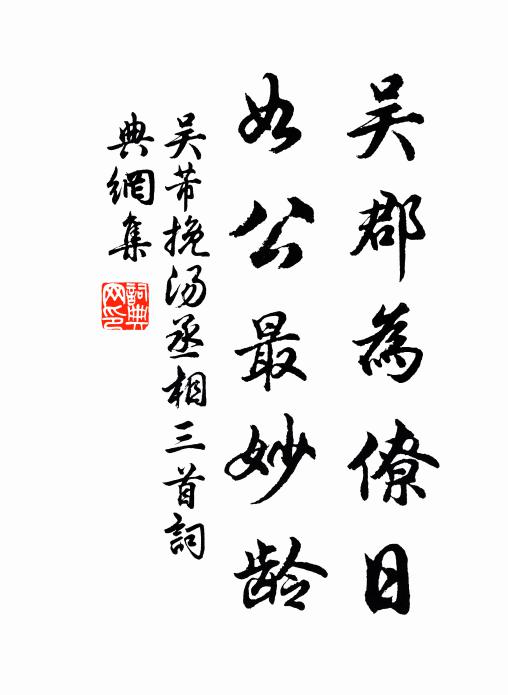 吴郡為僚日
如公最妙龄
吴芾挽汤丞相三首詞
典網集
詞典
网印